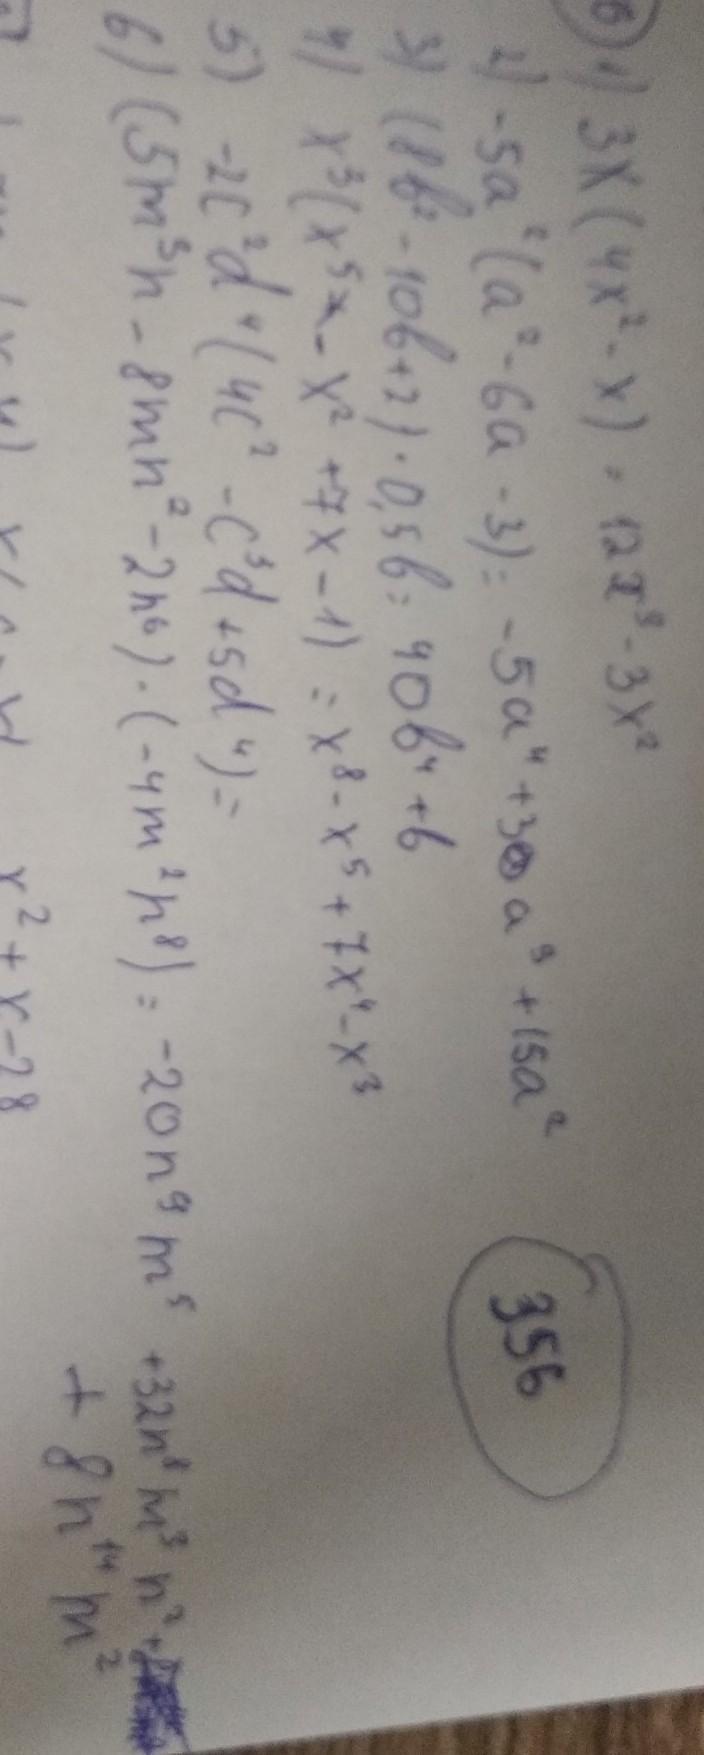 1) 3x(4x² - x) = 12x³ - 3x²
2) -5a²(a² - 6a - 3) = -5a⁴ + 30a³ + 15a²
356
3) (8b² - 10b + 2) · 0,5b = 40b⁴ + b
4) x³(x⁵ - x² + 7x - 1) = x⁸ - x⁵ + 7x⁴ - x³
5) -2c²d⁴(4c² - c³d + 5d⁴) =
6) (5m³n - 8mn² - 2n⁶) · (-4m²n⁸) = -20n⁹m⁵ + 32n⁸m³n² +
+ 8n¹⁴m²
x² + x - 28